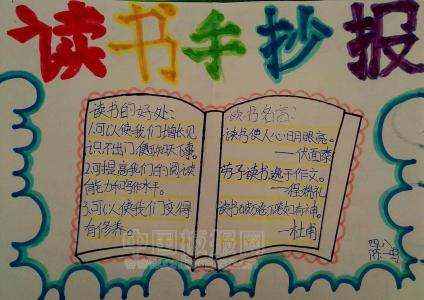 读书手抄报
读书的好处:
1.可以使我们增长见
识不出门,便知天下事。
2.可提高我们的阅读
有能力和写作水平。
3.可以使我们变得
有修养。
读书名言:
读书使人心明眼亮。
——伏尔泰
劳于读书,逸于作文。
——程端礼
读书破万卷下笔如有神。
——杜甫
四、八
中国板报网